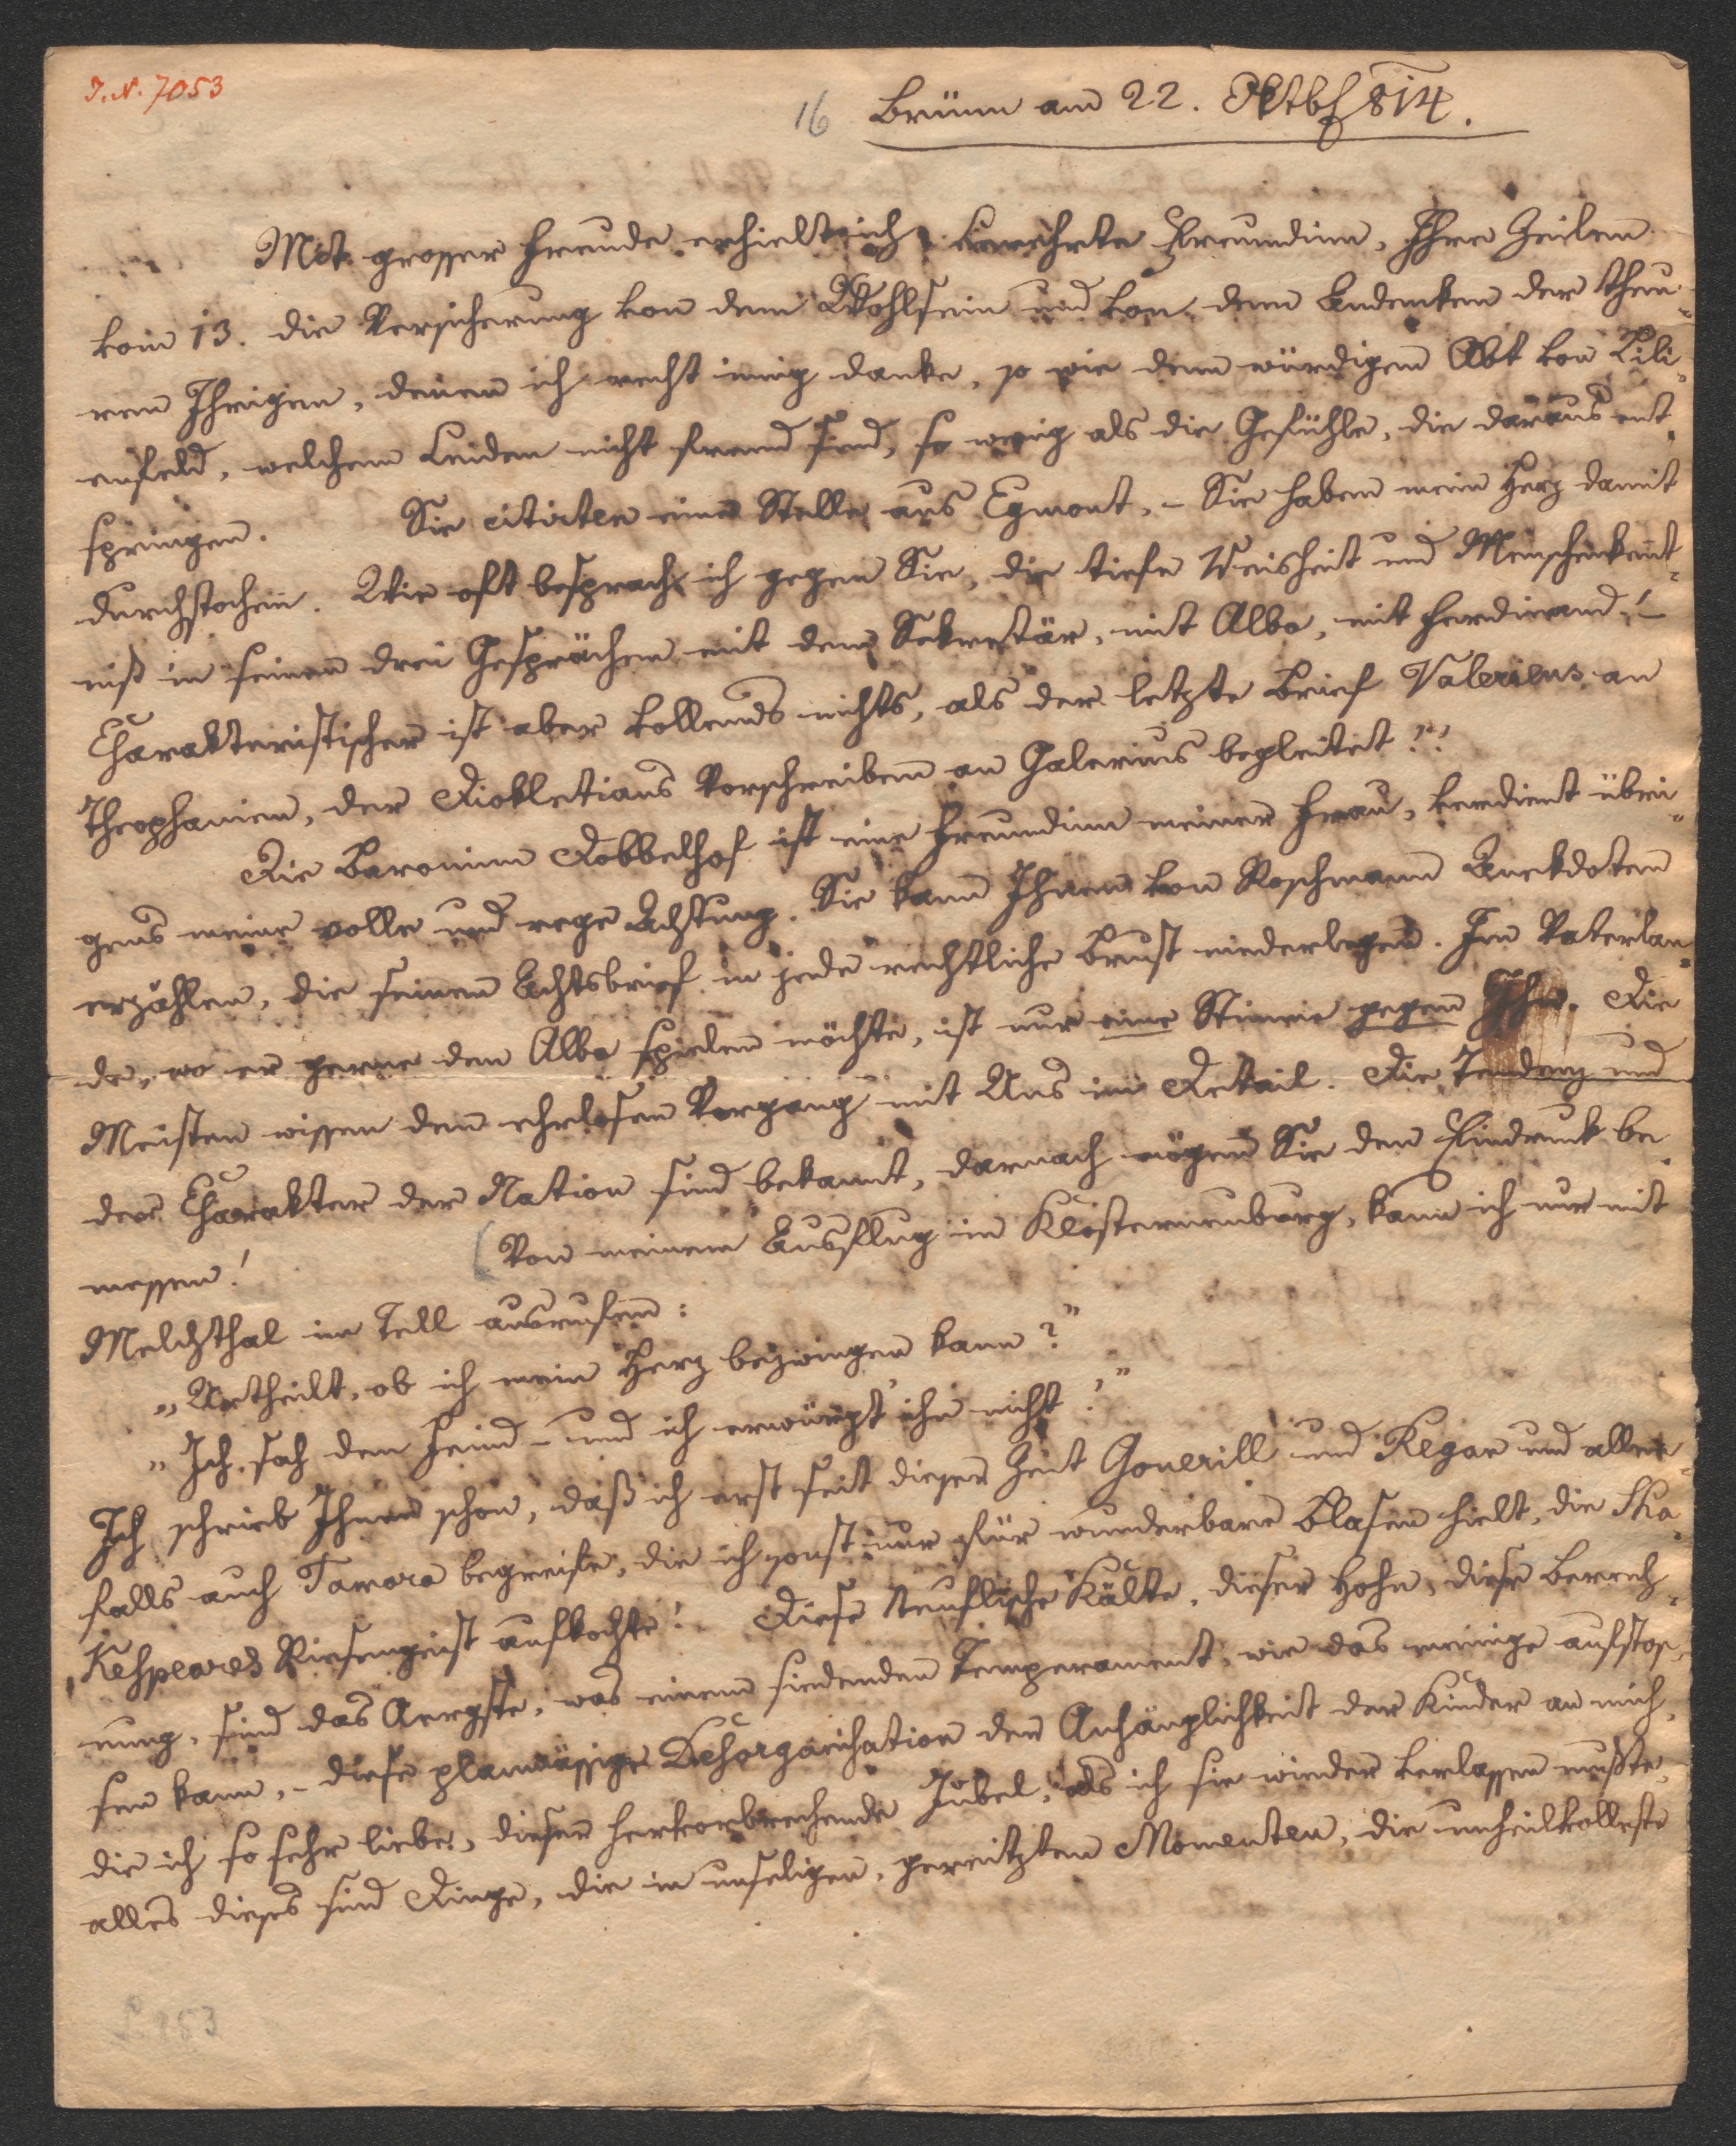 J.N. 7053
16 Brünn am 22. Oktbr 814.
Mit grosser Freude erhielt ich verehrte Freundinn, Ihre Zeilen
vom 13. die Versicherung von dem Wohlsein und von dem Andenken der theu-
ren Ihrigen, denen ich recht innig danke, so wie dem würdigen Abt von Lili-
enfeld, welchem Leiden nicht fremd sind, so wenig als die Gefühle, die daraus ent-
springen. Sie citirten eine Stelle aus Egmont, – Sie haben mein Herz damit
durchstochen. Wie oft besprach ich gegen Sie, die tiefe Weisheit und Menschenkennt-
niß in seinen drei Gesprächen mit dem Sekretär, mit Alba, mit Ferdinand! –
Charakteristischer ist aber vollends nichts, als der letzte Brief Valeriens an
Theophanien, der Diokletians Vorschreiben an Galerius begleitet!!
Die Baroninn Dobbelhof ist eine Freundinn meiner Frau, verdient übri-
gens meine volle und rege Achtung. Sie kann Ihnen von Roschmann Anekdoten
erzählen, die seinen Achtsbrief in jede rechtliche Brust niederlegen. Im Vaterlan-
de, wo er gerne den Alba spielen möchte, ist nur eine Stimme gegen Ihn. Die
Meisten wissen den ehrlosen Vorgang mit Uns im Detail. Die Tendenz und
der Charakter der Nation sind bekannt, darnach mögen Sie den Eindruck be-
messen! (Von meinem Ausflug in Klosterneuburg, kann ich nur mit
Melchthal im Tell ausrufen:
„Urtheilt, ob ich mein Herz bezwingen kann?"
„Ich sah den Feind – und ich erwürgt' ihn nicht!"
Ich schrieb Ihnen schon, daß ich erst seit dieser Zeit Gonerill und Regan und allen-
falls auch Tamora begreife, die ich sonst nur für wunderbare Blasen hielt, die Sha-
kespeares Riesengeist aufkochte! Diese teuflische Kälte, dieser Hohn, diese Berech-
nung, sind das Aergste, was einem siedenden Temperament, wie das meinige aufstos-
sen kann, – diese planmässige Desorganisation der Anhänglichkeit der Kinder an mich,
die ich so sehr liebe, dieser hervorbrechende Jubel, als ich sie wieder verlassen mußte,
alles dieses sind Dinge, die in unseligen, gereitzten Momenten, die unheilvolleste